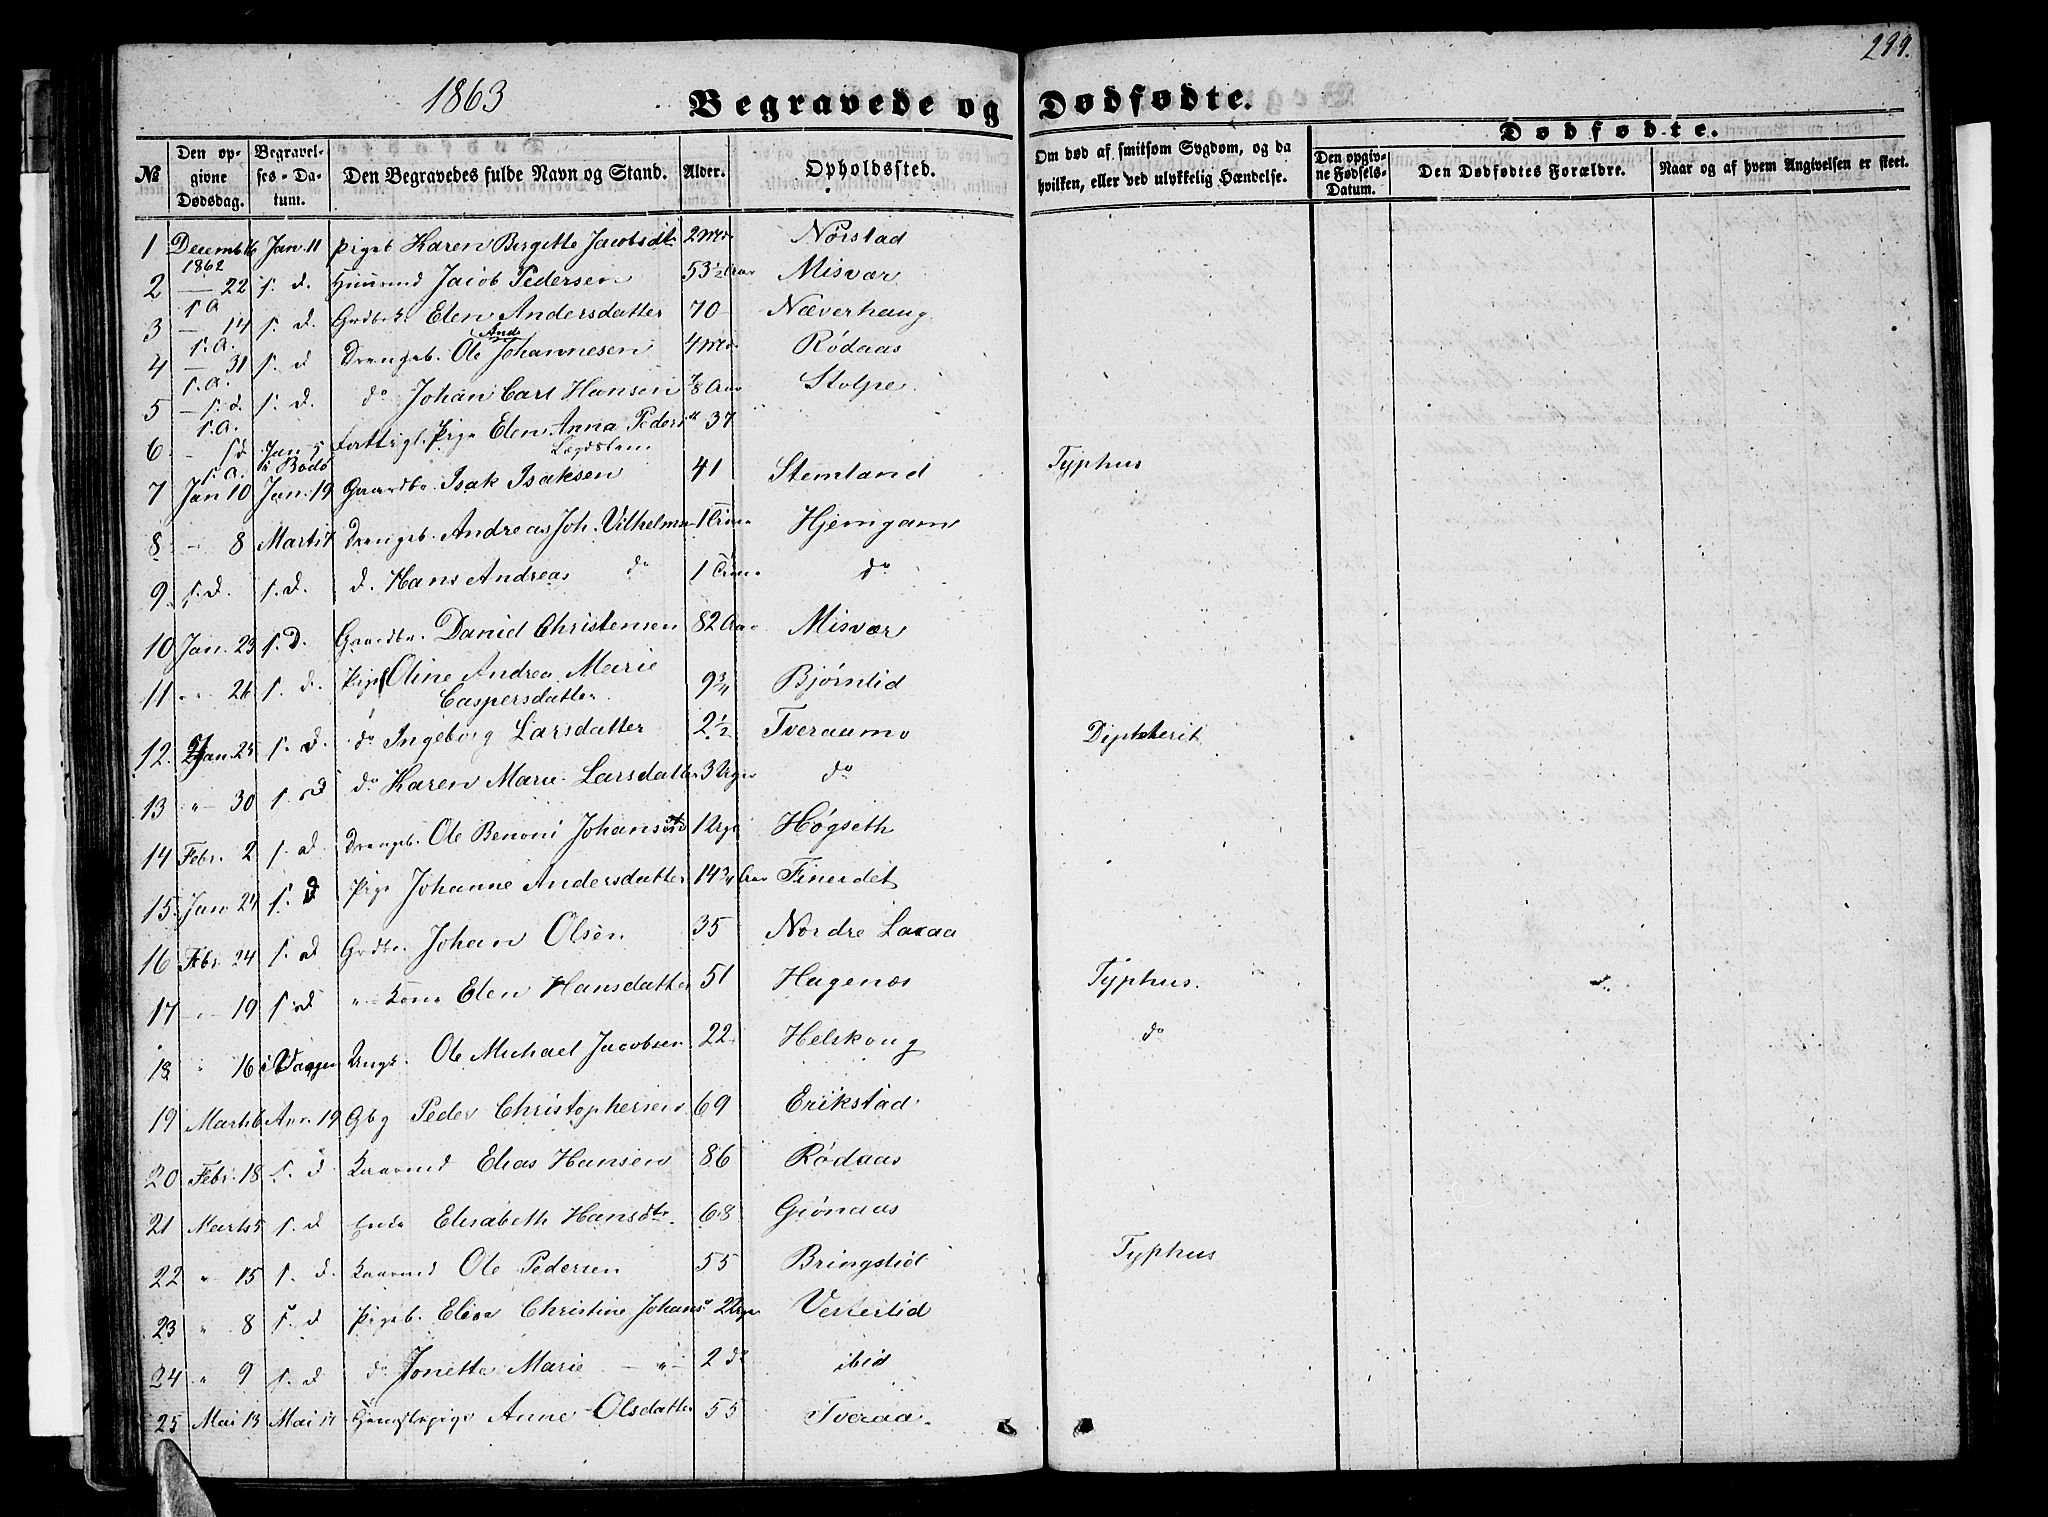 299.
1863
Begravede og Dødfødte.
Dødfødte.
№
Den opgivne Dødsdag.
Begravelses-Datum.
Den Begravedes fulde Navn og Stand.
Alder.
Opholdssted.
Om død af smitsom Sygdom, og da hvilken, eller ved ulykkelig Hændelse.
Den opgivne Fødsels-Datum.
Den Dødfødtes Forældre.
Naar og af hvem Angivelsen er skeet.
1 Decemb 16 1862 Jan. 11 Pigeb Karen Bergitte Jacobsdtr 2 Md. Nørstad
2 — 22 s.A. s. d. Huusmd Jacob Pedersen 53 1/2 Aar Misvær
3 — 14 s.A. s. d. Grdbr. Elen Andersdatter 70 Næverhaug
4 — 31 s.A. s. d Drengeb. Ole And. Johannesen 4 Md. Rødaas
5 — s.d. s.A. s. d. do Johan Carl Hansen 7/8 Aar Stolpe
6 — s d s.A. Jan 5 i Bodø Pige Elen Anna Peders 37
Lægdslem
7 Jan 10 Jan. 19 Gaardbr. Isak Isaksen 41 Stemland Typhus
8 — 8 Marts 17 Drengeb. Andreas Joh. Vilhelm 1 Hjemgam
9. s.d. s.d. d. Hans Andreas do 1 do
10 Jan. 23 s.d. Gaardbr. Daniel Christensen 82 Aar Misvær
11 " " 26 s. d. Pige Oline Andrea Marie Caspersdatter 9 3/4 Bjørnlid
12. Jan. 25 s. d. do Ingeborg Larsdatter 2 1/2 Tveraamo Diphtherit
13 " — 30 s. d do Karen Marie Larsdatter 3 Uger do
14 Febr. 2 s. d. Drengeb. Ole Benoni Johans 1 Uge Høgseth
15. Jan 24 s. d Pige Johanne Andersdatter 14 3/4 Aar Finerdet
16 Febr. 24 s. d Grdbr. Johan Olsen 35 Nordre Laxaa
17 — 19 s. d " Kone Elen Hansdatter 51 Hagenæs Typhus.
18 " 16 i Vaagen Ungk. Ole Michael Jacobsen 22 Helskoug do
19 Marts 6 Apr. 19 Gbg Peder Christophersen 69 Erikstad
20 Febr. 18 s. d Kaarmd Elias Hansen 86 Rødaas
21 Marts 5 s. d Enke Elisabeth Hansdtr. 68 Gjønaas
22 " 15 s. d. Kaarmd Ole Pedersen 55 Bringslid Typhus
23 " 8 s. d Pigeb. Elisa Christine Johans 2 Uger Vesterlid
24 " 9 s. d do Jonette Marie — " — 2 do ibid
25 Mai 13 Mai 17 Anne Olsdatter 55 Tveraa.